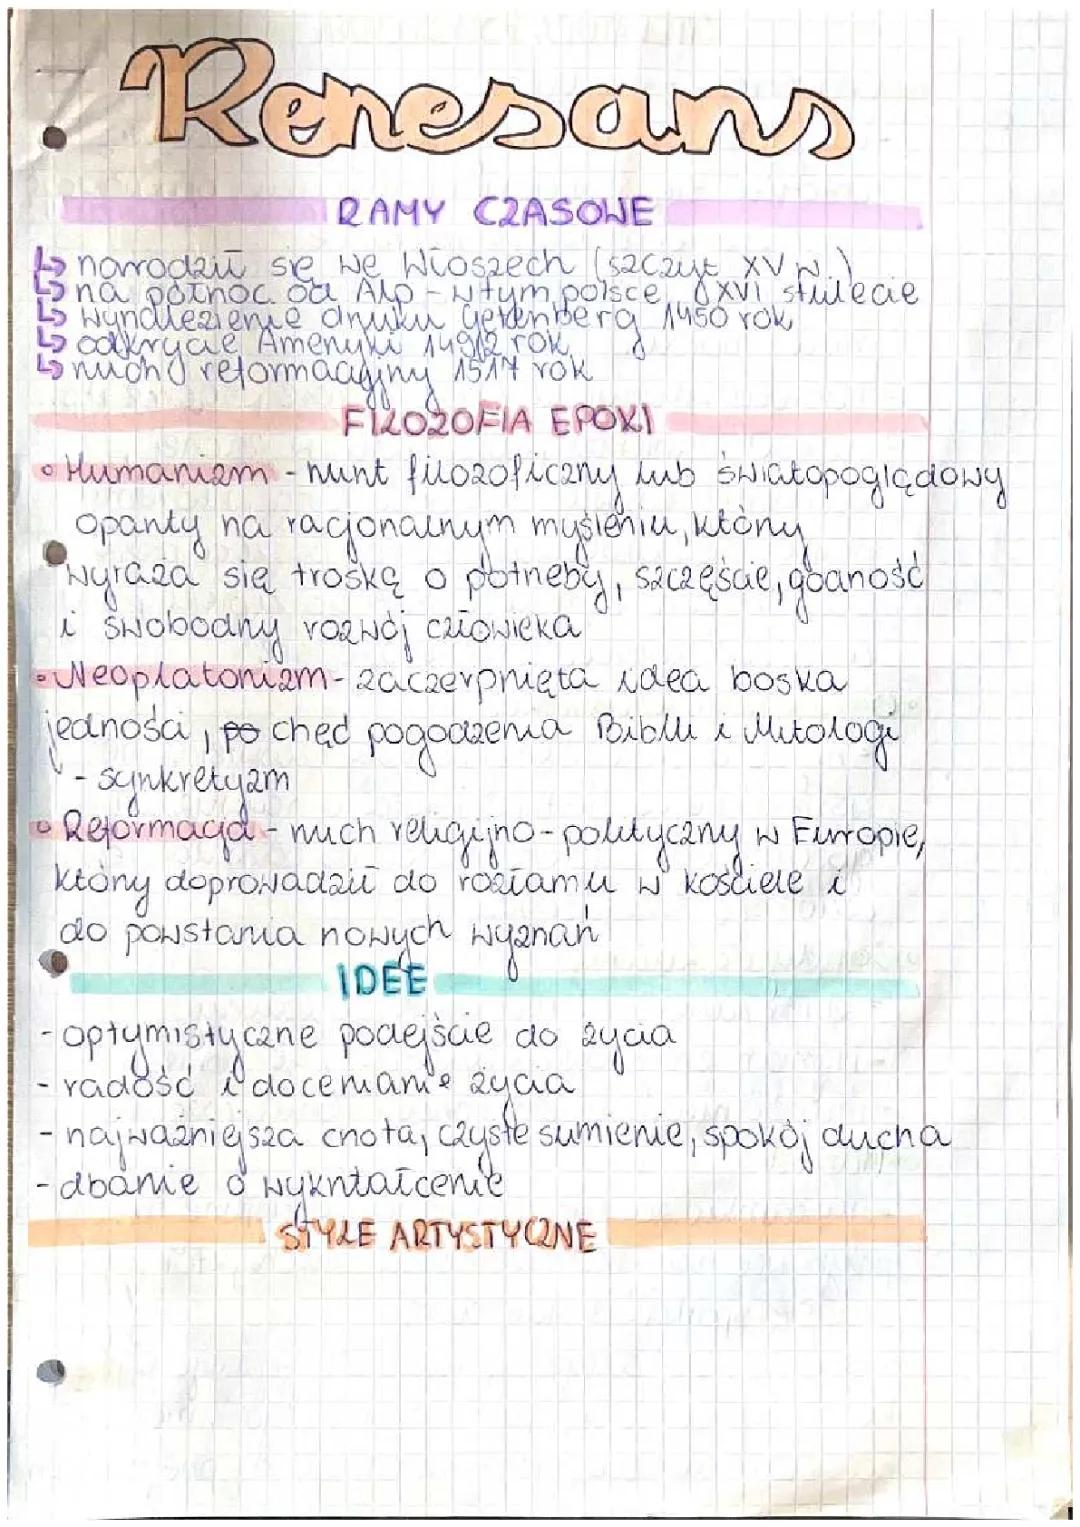 Renesans
RAMY CZASOWE
↳ narodził się we Włoszech (szczyt XV w.)
↳ na północ od Alp - w tym polsce, XVI stulecie
↳ wynalezienie druku Getenberg 1450 rok
↳ odkrycie Ameryki rok
↳ ruch reformacyjny 1517 rok
FILOZOFIA EPOKI
• Humanizm - nurt filozoficzny lub światopoglądowy
oparty na racjonalnym myśleniu, który
wyraża się troską o potrzeby, szczęście, godność
i swobodny rozwój człowieka
• Neoplatonizm - zaczerpnięta idea boska
jedności, po chęć pogodzenia Biblii i Mitologi
- synkretyzm
• Reformacja - ruch religijno - polityczny w Europie,
który doprowadził do rozłamu w kościele i
do powstania nowych wyznań
IDEE
- optymistyczne podejście do życia
- radość i docenianie życia
- najważniejsza cnota, czyste sumienie, spokój ducha
- dbanie o wykrztałcenie
STYLE ARTYSTYCZNE